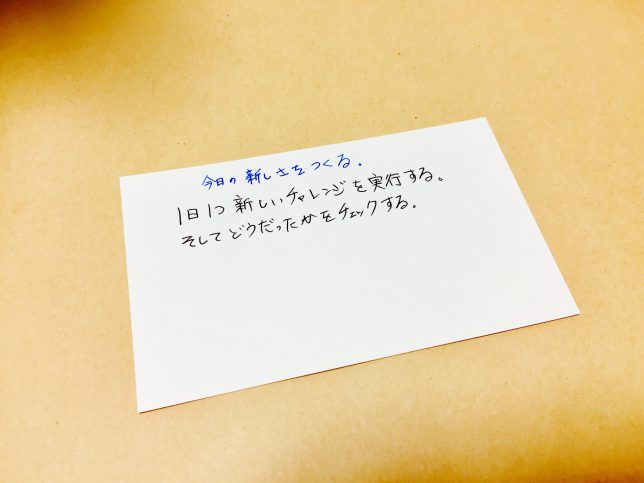 今日の新しさをつくる。
1日1つ新しいチャレンジを実行する。
そしてどうだったかをチェックする。